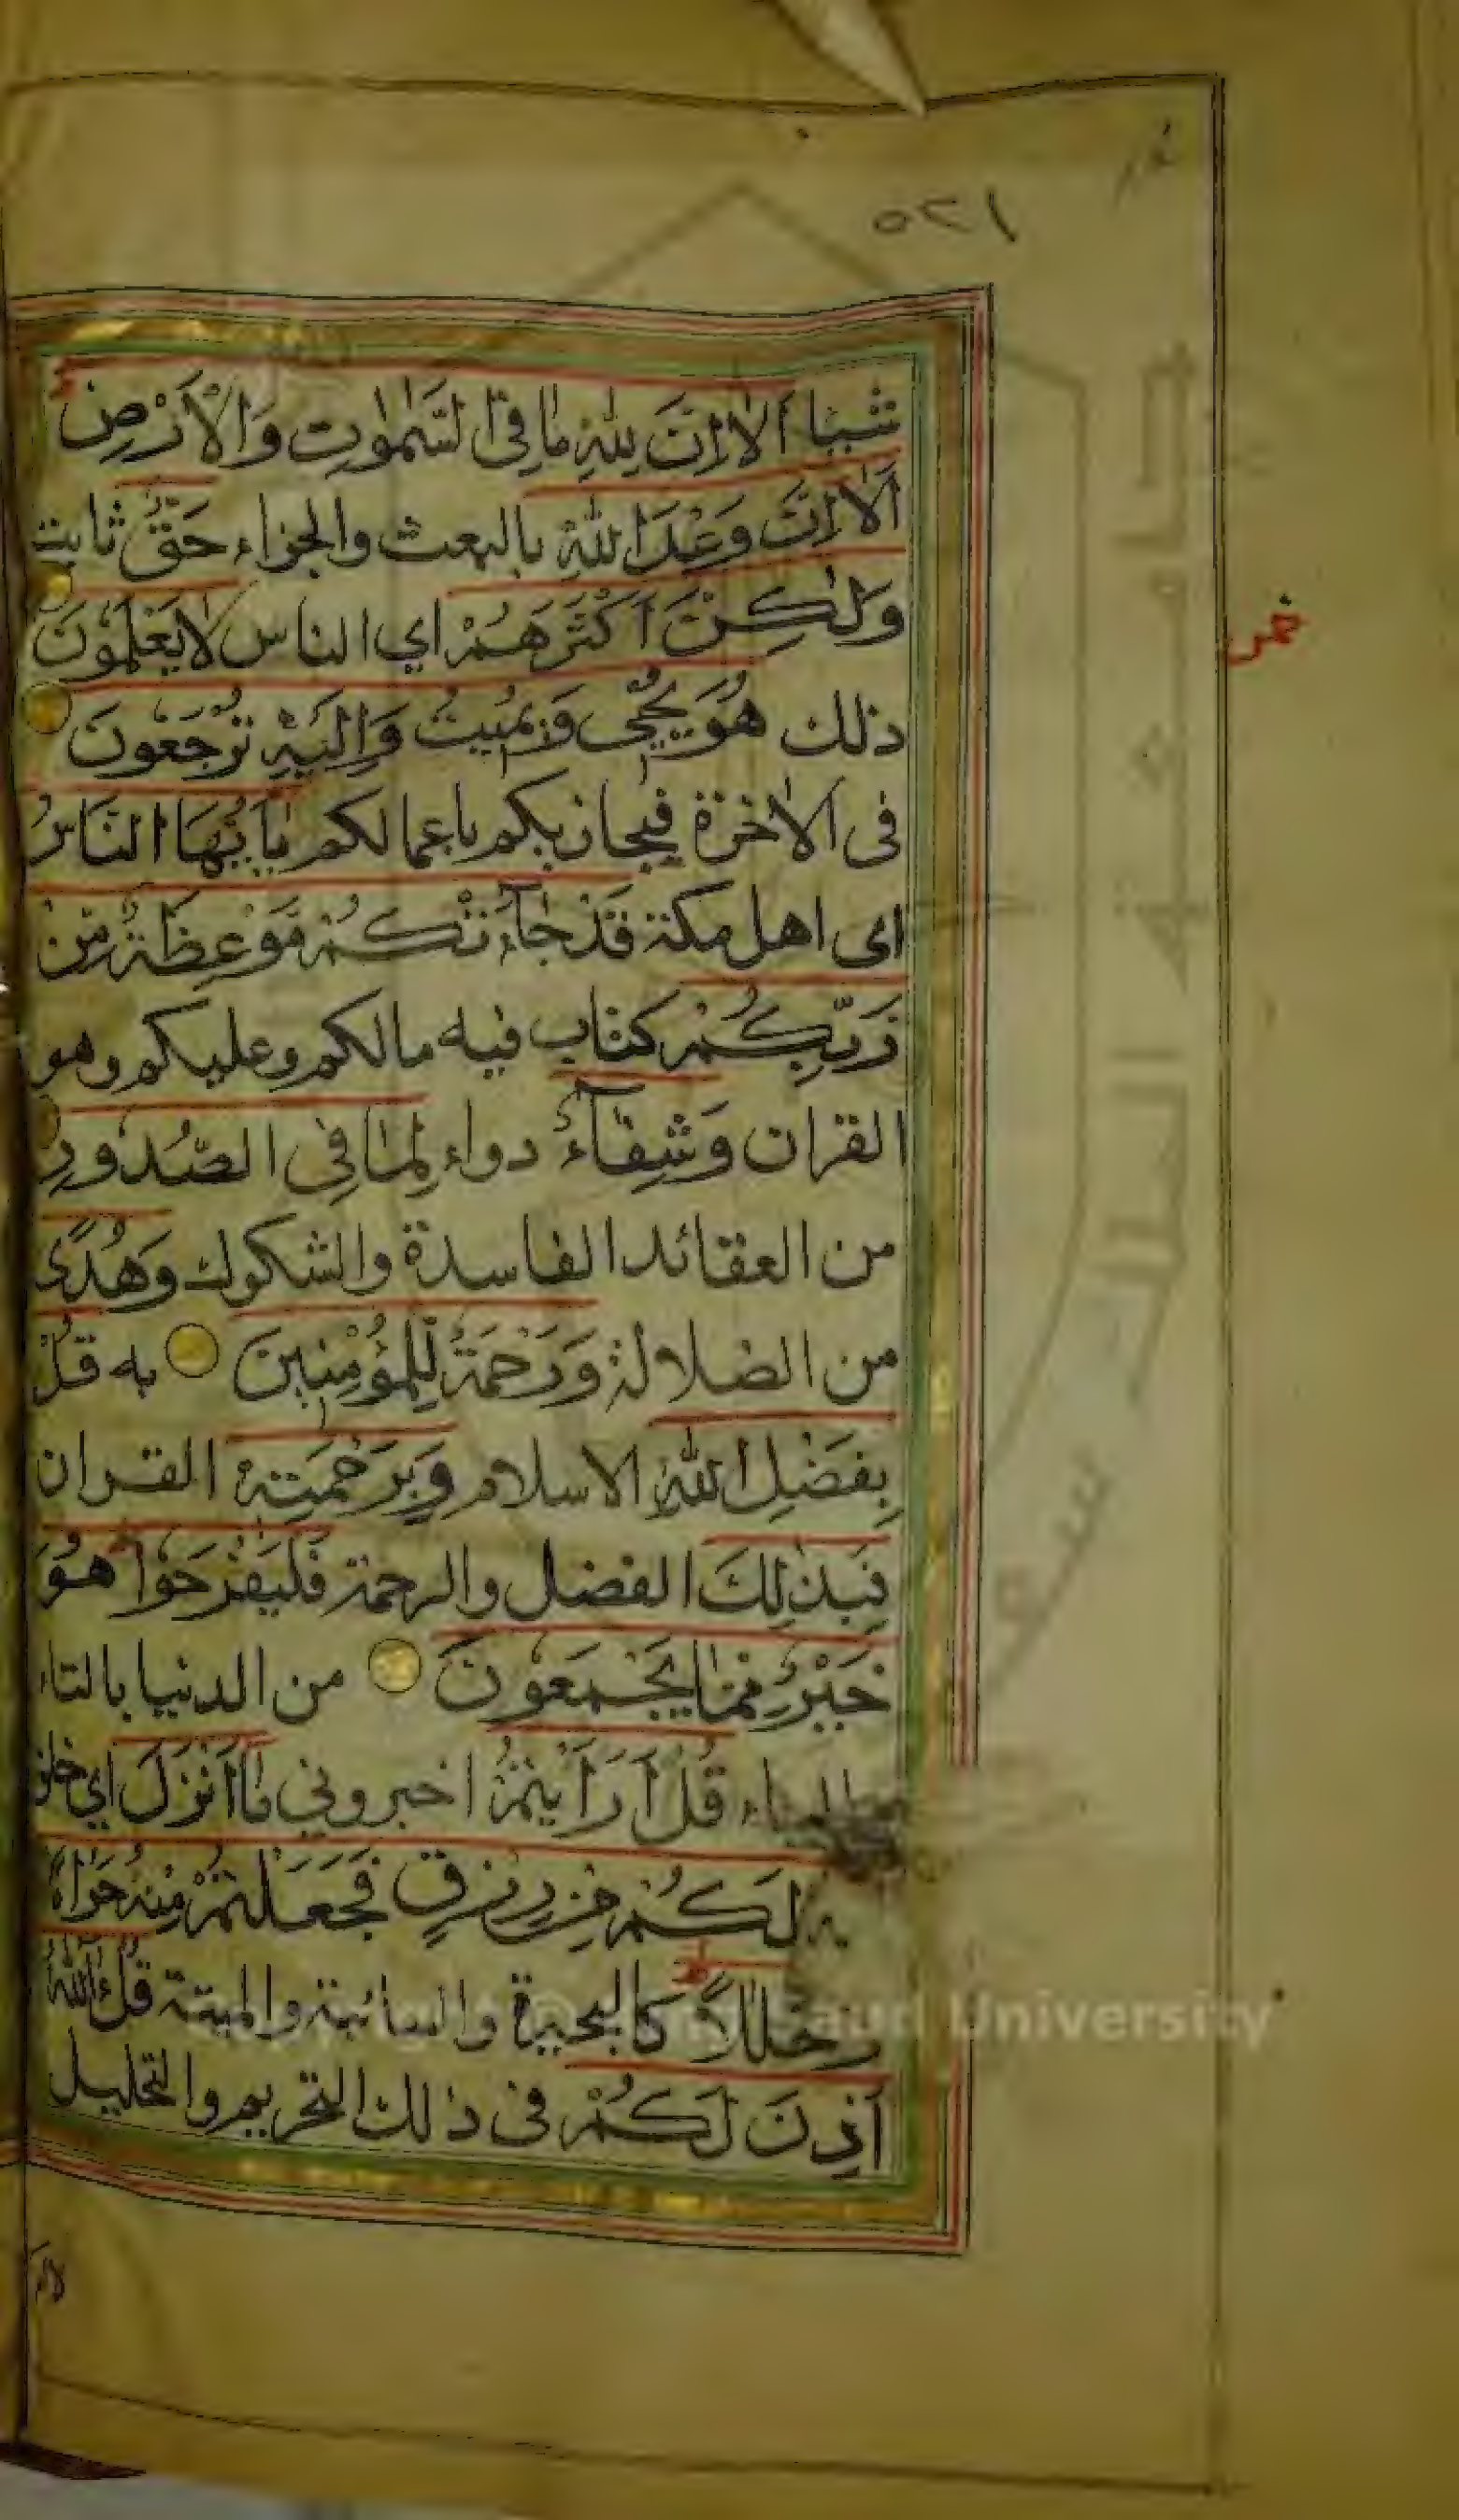 ٥٢١
شيئا اَلَا اِنَّ لِلّٰهِ مَا فِي السَّمٰوٰتِ وَالْاَرْضِ
اَلَا اِنَّ وَعْدَ اللّٰهِ بالبعث والجزاء حَقٌّ ثابت
وَلٰكِنَّ اَكْثَرَهُمْ اي الناس لَا يَعْلَمُونَ
ذلك هُوَ يُحْيِي وَيُمِيتُ وَاِلَيْهِ تُرْجَعُونَ
فى الاخرة فيجازيكم باعمالكم يٰاَيُّهَا النَّاسُ
اى اهل مكة قَدْ جَاءَتْكُمْ مَوْعِظَةٌ مِنْ
رَبِّكُمْ كتاب فيه مالكم وعليكم وهو
القران وَشِفَاءٌ دواء لِمَا فِي الصُّدُورِ
من العقائد الفاسدة والشكوك وَهُدًى
من الضلالة وَرَحْمَةٌ لِلْمُؤْمِنِينَ به قُلْ
بِفَضْلِ اللّٰهِ الاسلام وَبِرَحْمَتِهٖ القران
فَبِذٰلِكَ الفضل والرحمة فَلْيَفْرَحُوا هُوَ
خَيْرٌ مِمَّا يَجْمَعُونَ من الدنيا بالتاء
والياء قُلْ اَرَاَيْتُمْ اخبروني مَا اَنْزَلَ اي خلق
لَكُمْ مِنْ رِزْقٍ فَجَعَلْتُمْ مِنْهُ حَرَامًا
وَحَلَالًا كالبحيرة والسائبة والميتة قُلْ ءَاللّٰهُ
اَذِنَ لَكُمْ فى ذلك التحريم والتحليل
Saud University